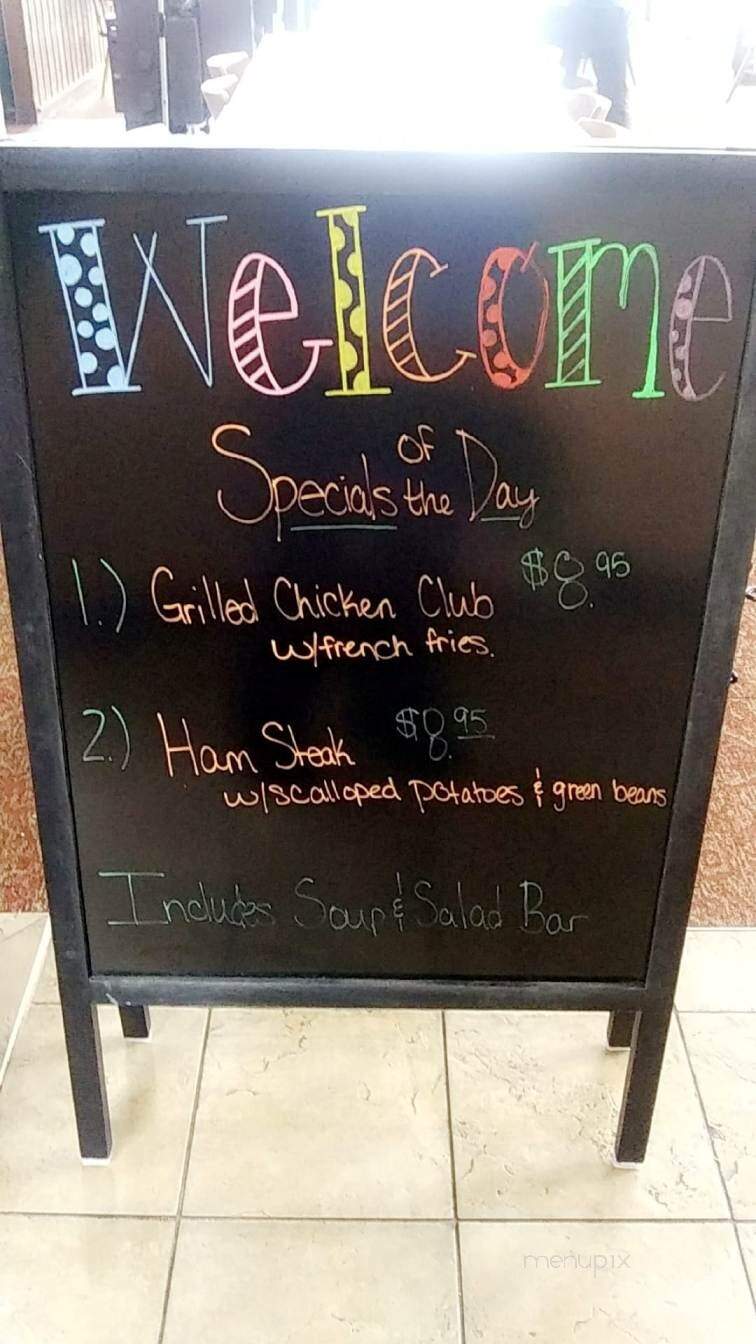 Welcome
Specials of the Day
1.) Grilled Chicken Club $8.95
w/french fries.
2.) Ham Steak $8.95
w/scalloped potatoes & green beans
Includes Soup & Salad Bar
menupix